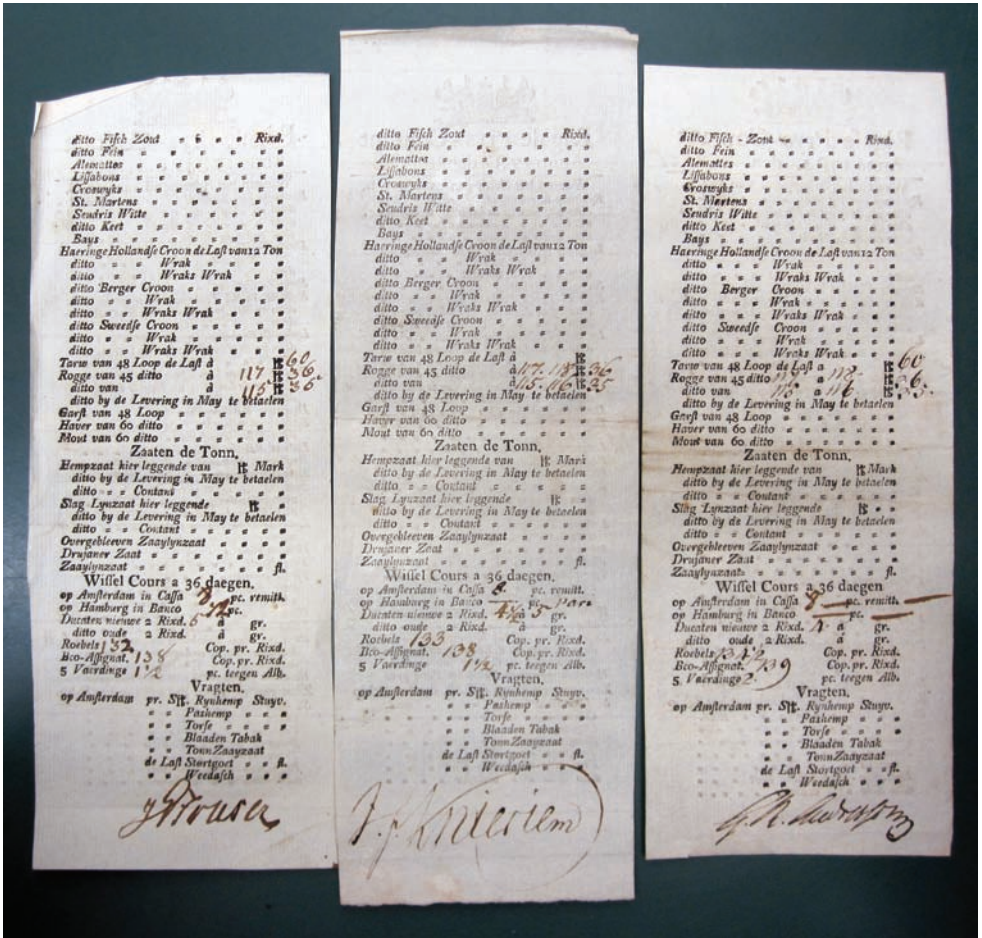 ditto Fisch Zout Rixd.
ditto Fein
Alemattes
Lissabons
Croswyks
St. Martens
Seudris Witte
ditto Keet
Bays
Haeringe Hollandse Croon de Last van 12 Ton
ditto Wrak
ditto Wraks Wrak
ditto Berger Croon
ditto Wrak
ditto Wraks Wrak
ditto Sweedse Croon
ditto Wrak
ditto Wraks Wrak
Tarw van 48 Loop de Last à 60
Rogge van 45 ditto à 117 36
ditto van à 115 35
ditto by de Levering in May te betaelen
Garst van 48 Loop
Haver van 60 ditto
Mout van 60 ditto
Zaaten de Tonn.
Hempzaat hier leggende van Mark
ditto by de Levering in May te betaelen
ditto Contant
Slag Lynzaat hier leggende
ditto by de Levering in May te betaelen
ditto Contant
Overgebleeven Zaaylynzaat
Drujaner Zaat
Zaaylynzaat fl.
Wissel Cours a 36 daegen.
op Amsterdam in Cassa 8 pc. remitt.
op Hamburg in Banco pc.
Ducaten nieuwe 2 Rixd. 6 à gr.
ditto oude 2 Rixd. à gr.
Roebels 132 Cop. pr. Rixd.
Bco-Assignat. 138 Cop. pr. Rixd.
5 Vaerdinge 1½ pc. teegen Alb.
Vragten.
op Amsterdam pr. S℔. Rynhemp Stuyv.
Pashemp
Torse
Blaaden Tabak
Tonn Zaayzaat
de Last Stortgoet fl.
Weedasch
ditto Fisch Zout Rixd.
ditto Fein
Alemattes
Lissabons
Croswyks
St. Martens
Seudris Witte
ditto Keet
Bays
Haeringe Hollandse Croon de Last van 12 Ton
ditto Wrak
ditto Wraks Wrak
ditto Berger Croon
ditto Wrak
ditto Wraks Wrak
ditto Sweedse Croon
ditto Wrak
ditto Wraks Wrak
Tarw van 48 Loop de Last à
Rogge van 45 ditto à 117. 118 36
ditto van à 115. 116 35
ditto by de Levering in May te betaelen
Garst van 48 Loop
Haver van 60 ditto
Mout van 60 ditto
Zaaten de Tonn.
Hempzaat hier leggende van Mark
ditto by de Levering in May te betaelen
ditto Contant
Slag Lynzaat hier leggende
ditto by de Levering in May te betaelen
ditto Contant
Overgebleeven Zaaylynzaat
Drujaner Zaat
Zaaylynzaat fl.
Wissel Cours a 36 daegen.
op Amsterdam in Cassa 8 pc. remitt.
op Hamburg in Banco
Ducaten nieuwe 2 Rixd. 4½ à 5 gr.
ditto oude 2 Rixd. à gr.
Roebels 133 Cop. pr. Rixd.
Bco-Assignat. 138 Cop. pr. Rixd.
5 Vaerdinge 1½ pc. teegen Alb.
Vragten.
op Amsterdam pr. S℔. Rynhemp Stuyv.
Pashemp
Torse
Blaaden Tabak
Tonn Zaayzaat
de Last Stortgoet fl.
Weedasch
Knieriem
ditto Fisch - Zout Rixd.
ditto Fein
Alemattes
Lissabons
Croswyks
St. Martens
Seudris Witte
ditto Keet
Bays
Haeringe Hollandse Croon de Last van 12 Ton
ditto Wrak
ditto Wraks Wrak
ditto Berger Croon
ditto Wrak
ditto Wraks Wrak
ditto Sweedse Croon
ditto Wrak
ditto Wraks Wrak
Tarw van 48 Loop de Last a 60
Rogge van 45 ditto a 118 36
ditto van 115 a 116 35
ditto by de Levering in May te betaelen
Garst van 48 Loop
Haver van 60 ditto
Mout van 60 ditto
Zaaten de Tonn.
Hempzaat hier leggende van Mark
ditto by de Levering in May te betaelen
ditto Contant
Slag Lynzaat hier leggende
ditto by de Levering in May te betaelen
ditto Contant
Overgebleeven Zaaylynzaat
Drujaner Zaat
Zaaylynzaat fl.
Wissel Cours a 36 daegen
op Amsterdam in Cassa 8 pc. remitt.
op Hamburg in Banco pc.
Ducaten nieuwe 2 Rixd. à gr.
ditto oude 2 Rixd. à gr.
Roebels Cop. pr. Rixd.
Bco-Assignat. 139 Cop. pr. Rixd.
5 Vaerdinge 2 pc. teegen Alb.
Vragten.
op Amsterdam pr. S℔. Rynhemp Stuyv.
Pashemp
Torse
Blaaden Tabak
Tonn Zaayzaat
de Last Stortgoet fl.
Weedasch